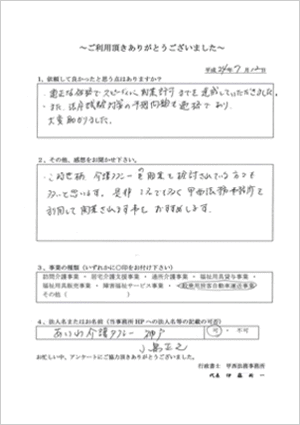 ～ご利用頂きありがとうございました～
平成24年7月12日
1、依頼して良かったと思う点はありますか？
・適正な価格でスピーディーに開業許可までを達成していただきました。
・また、法令試験対策の予想問題も適格であり、
大変助かりました。
2、その他、感想をお聞かせ下さい。
・この時世柄、介護タクシーの開業を検討されている方も
多いと思います。是非
利用して開業されます事をおすすめします。
3、事業の種類（いずれかに○印をお付け下さい）
訪問介護事業・居宅介護支援事業・通所介護事業・福祉用具貸与事業・
福祉用具販売事業・障害福祉サービス事業・一般乗用旅客自動車運送事業
その他（　　　　）
4、法人名またはお名前（当事務所HPへの法人名等の記載の可否）
介護タクシー 神戸
可・不可
お忙しい中、アンケートにご協力頂きありがとうございました。
行政書士 甲西法務事務所
代表 伊藤